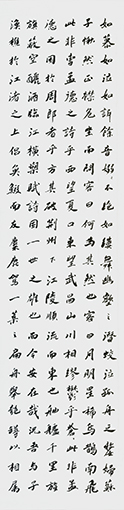 如慕如泣如訴餘音嫋嫋不絕如縷舞幽壑之潛蛟泣孤舟之嫠婦蘇
子愀然正襟危坐而問客曰何為其然也客曰月明星稀烏鵲南飛
此非孟德之詩乎西望夏口東望武昌山川相繆鬱乎蒼蒼此非孟
德之困於周郎者乎方其破荊州下江陵順流而東也舳艫千里旌
旗蔽空釃酒臨江橫槊賦詩固一世之雄也而今安在哉況吾與子
漁樵於江渚之上侶魚蝦而友麋鹿駕一葉之扁舟舉匏樽以相屬